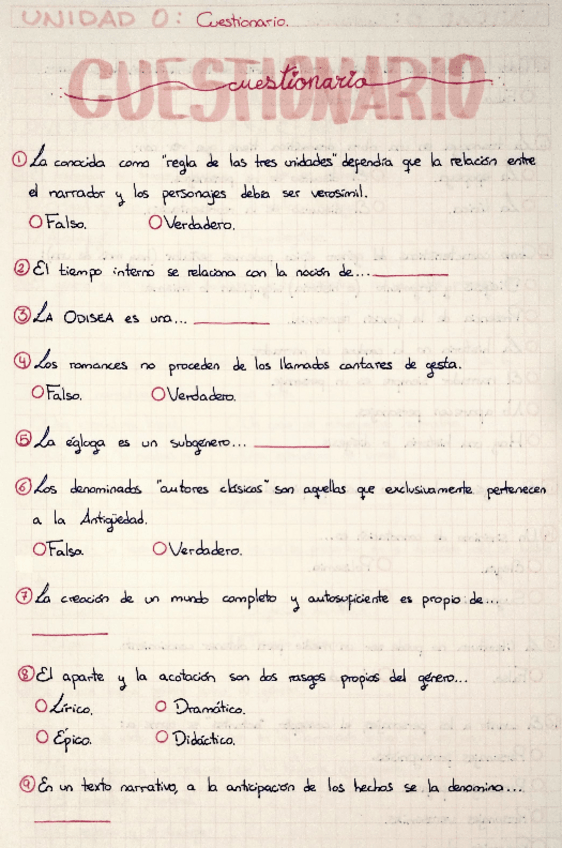 UNIDAD 0: Cuestionario.
CUESTIONARIO
cuestionario
① La conocida como "regla de las tres unidades" defendía que la relación entre
el narrador y los personajes debía ser verosímil.
Falso. Verdadero.
② El tiempo interno se relaciona con la noción de...
③ LA ODISEA es una...
④ Los romances no proceden de los llamados cantares de gesta.
Falso. Verdadero.
⑤ La égloga es un subgénero...
⑥ Los denominados "autores clásicos" son aquellos que exclusivamente pertenecen
a la Antigüedad.
Falso. Verdadero.
⑦ La creación de un mundo completo y autosuficiente es propio de...
⑧ El aparte y la acotación son dos rasgos propios del género...
Lírico. Dramático.
Épico. Didáctico.
⑨ En un texto narrativo, a la anticipación de los hechos se la denomina...